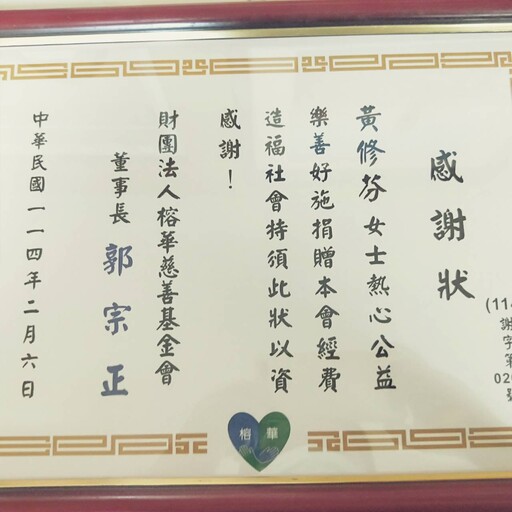 感謝狀
黃修芬女士熱心公益
樂善好施捐贈本會經費
造福社會特頒此狀以資
感謝！
財團法人榕華慈善基金會
董事長 郭宗正
中華民國一一四年二月六日
榕華